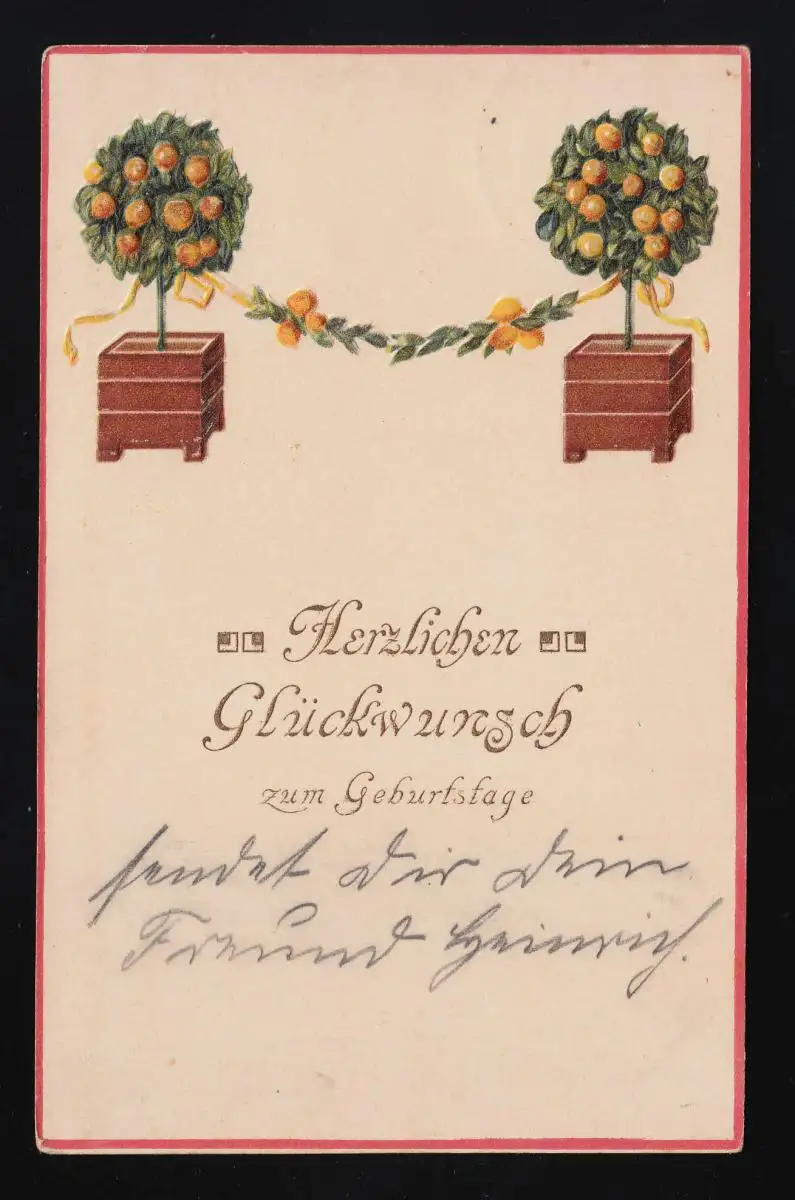 Herzlichen
Glückwunsch
zum Geburtstage
sendet Dir Dein
Freund Heinrich.